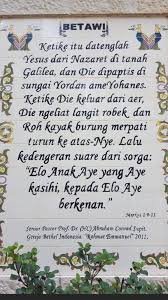 BETAWI
Ketike itu datenglah
Yesus dari Nazaret di tanah
Galilea, dan Die dipaptis di
sungai Yordan ameYohanes.
Ketike Die keluar dari aer,
Die ngeliat langit robek, dan
Roh kayak burung merpati
turun ke atas-Nye. Lalu
kedengeran suare dari sorga:
"Elo Anak Aye yang Aye
kasihi, kepada Elo Aye
berkenan."
Markus 1:9-11
Senior Pastor Prof. Dr. (HC) Abraham Conrad Supit.
Gereja Bethel Indonesia. "Rahmat Emmanuel" 2011.